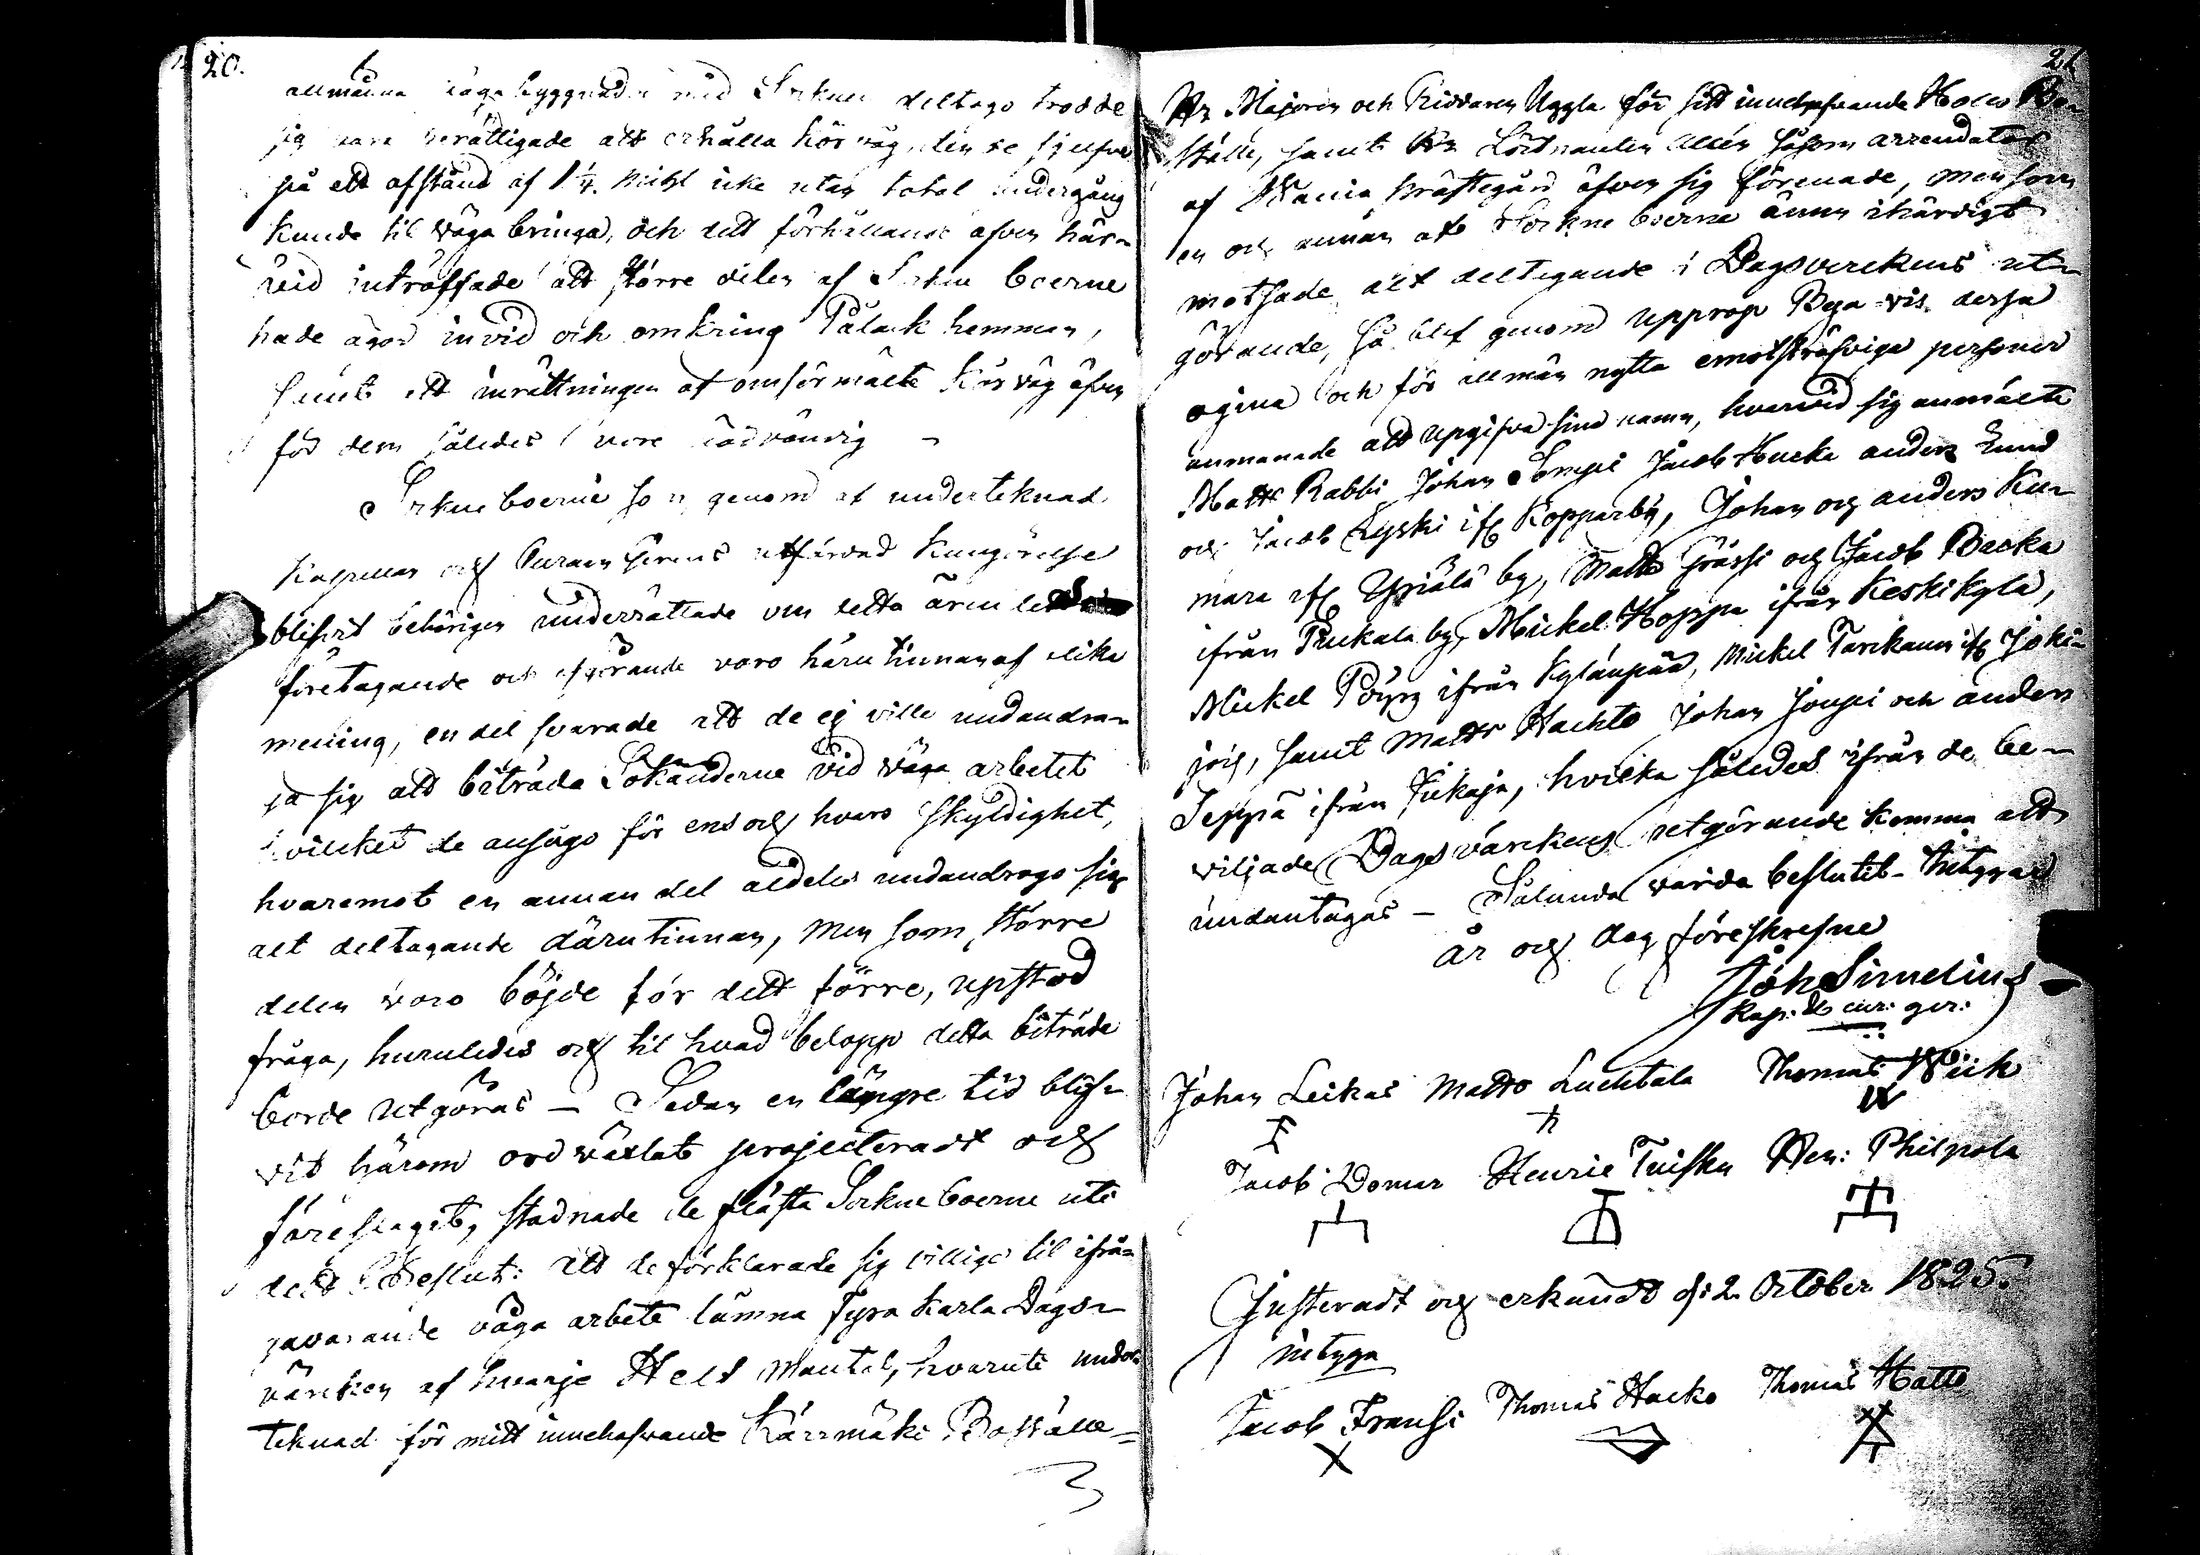 20.
allmänna vägabyggnader med Sokne deltago trodde
sig vara berättigade att erhålla körväg, den de sjelfve
på ett afstånd af 1 1/4. Mihl icke utan total undergång
kunde til wäga bringa, och dett förhållande äfven här-
vid inträffade att större delen af Sokne boerne
hade ägor invid och omkring Palack hemman,
samt att inrättningen af omförmälte Körväg äfven
för dem således vore nödvändig -
Soknebოerne som genom af undertecknad
Kapellan och Curam gerens utfärdad Kungörelse
blifvit behörigen underrättade om detta ärendets
företagande och afgörande voro härutinnan af olika
mening, en del svarade att de ej ville undandra-
ga sig att biträda Sökanderne vid wäga arbetet
hvilcket de ansågo för ens och hvars skyldighet,
hvaremot en annan del aldeles undandrogo sig
alt deltagande därutinnan, Men som större
delen woro böjde för dett förre, upstod
fråga, huruledes och til hvad belopp detta biträde
borde utgöras - Sedan en längre tid blif-
vit härom ordwäxlat projecteradt och
föreslagit, stadnade de flästa Sokneboerne uti
dett Beslut: att de förklarade sig villige til ifrå-
gavarande väga arbete lämna fyra Karla Dags-
värcken af hvarje Helt Mantal, hvaruti under
teknad för mitt innehafvande Kärrmäki Boställe =
21
Hr Majoren och Riddaren Uggla för sitt innehafvande Holes Bo-
ställe, samt Hr Löitnanten Allén såsom arrendator
af Wania Prästegård äfven sig förenade, men som
en och annan af Sokne boerne ännu ihärdigt
motsade alt deltagande i Dagsverckens ut-
görande, så blef genom upprop Bya-vis dessa
ogina och för allmän nytta emotsträfviga personer
anmanade att upgifva sina namn, hvarvid sig anmälte
Matts Rabbi Johan Sompi Jacob Hucka anders Lund
och Jacob Lyski ifr Kopparby, Johan och anders Ku-
mara ifr Yriälä by, Matts Grässi och Jacob Backa
ifrån Pukala by, Mickel Hoppa ifrån Keskikylä,
Mickel Pöyry ifrån Kylänpää, Mickel Tarikann ifr Joki-
jois, samt Matts Hachto Johan Joupi och anders
Seppä ifrån Jukaja, hvilka således ifrån de be-
viljade Dagsvärckens utgörande komma att
undantagas - Sålunda varda beslutit - Intygar
år och dag föreskrefne
Joh Simelius
Kap: & cur: ger:
Johan Leikas Matts Luchtala Thomas Wiik
Jacob Domar Henric Tuisku Hen: Philpola
Justeradt och erkändt d: 2 October 1825.
intyga
Jacob Fransi Thomas Hacko Thomas Hatto